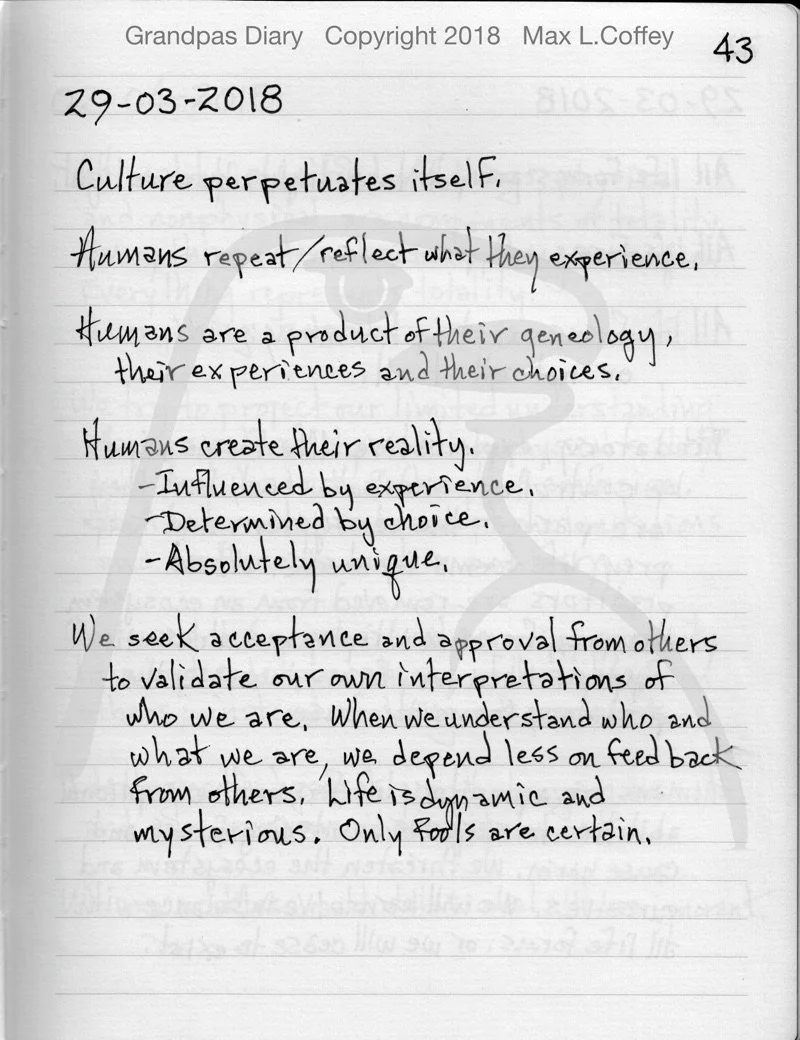 Grandpas Diary Copyright 2018 Max L.Coffey
43
29-03-2018
Culture perpetuates itself.
Humans repeat/reflect what they experience.
Humans are a product of their geneology,
their experiences and their choices.
Humans create their reality.
-Influenced by experience.
-Determined by choice.
-Absolutely unique.
We seek acceptance and approval from others
to validate our own interpretations of
who we are. When we understand who and
what we are, we depend less on feedback
from others. Life is dynamic and
mysterious. Only fools are certain.